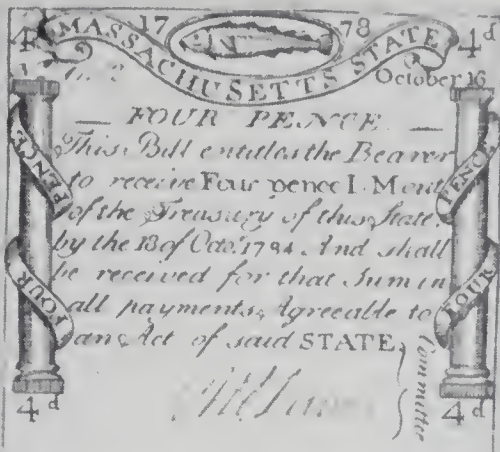 4d 17 78 4d
MASSACHUSETTS STATE
October 16
FOUR PENCE
This Bill entitles the Bearer
to receive Four pence L. Mont
of the Treasury of this State.
by the 18 of Octo. 1784. And shall
be received for that Sum in
all payments, Agreeable to
an Act of said STATE
Committee
FOUR PENCE
FOUR PENCE
4d 4d